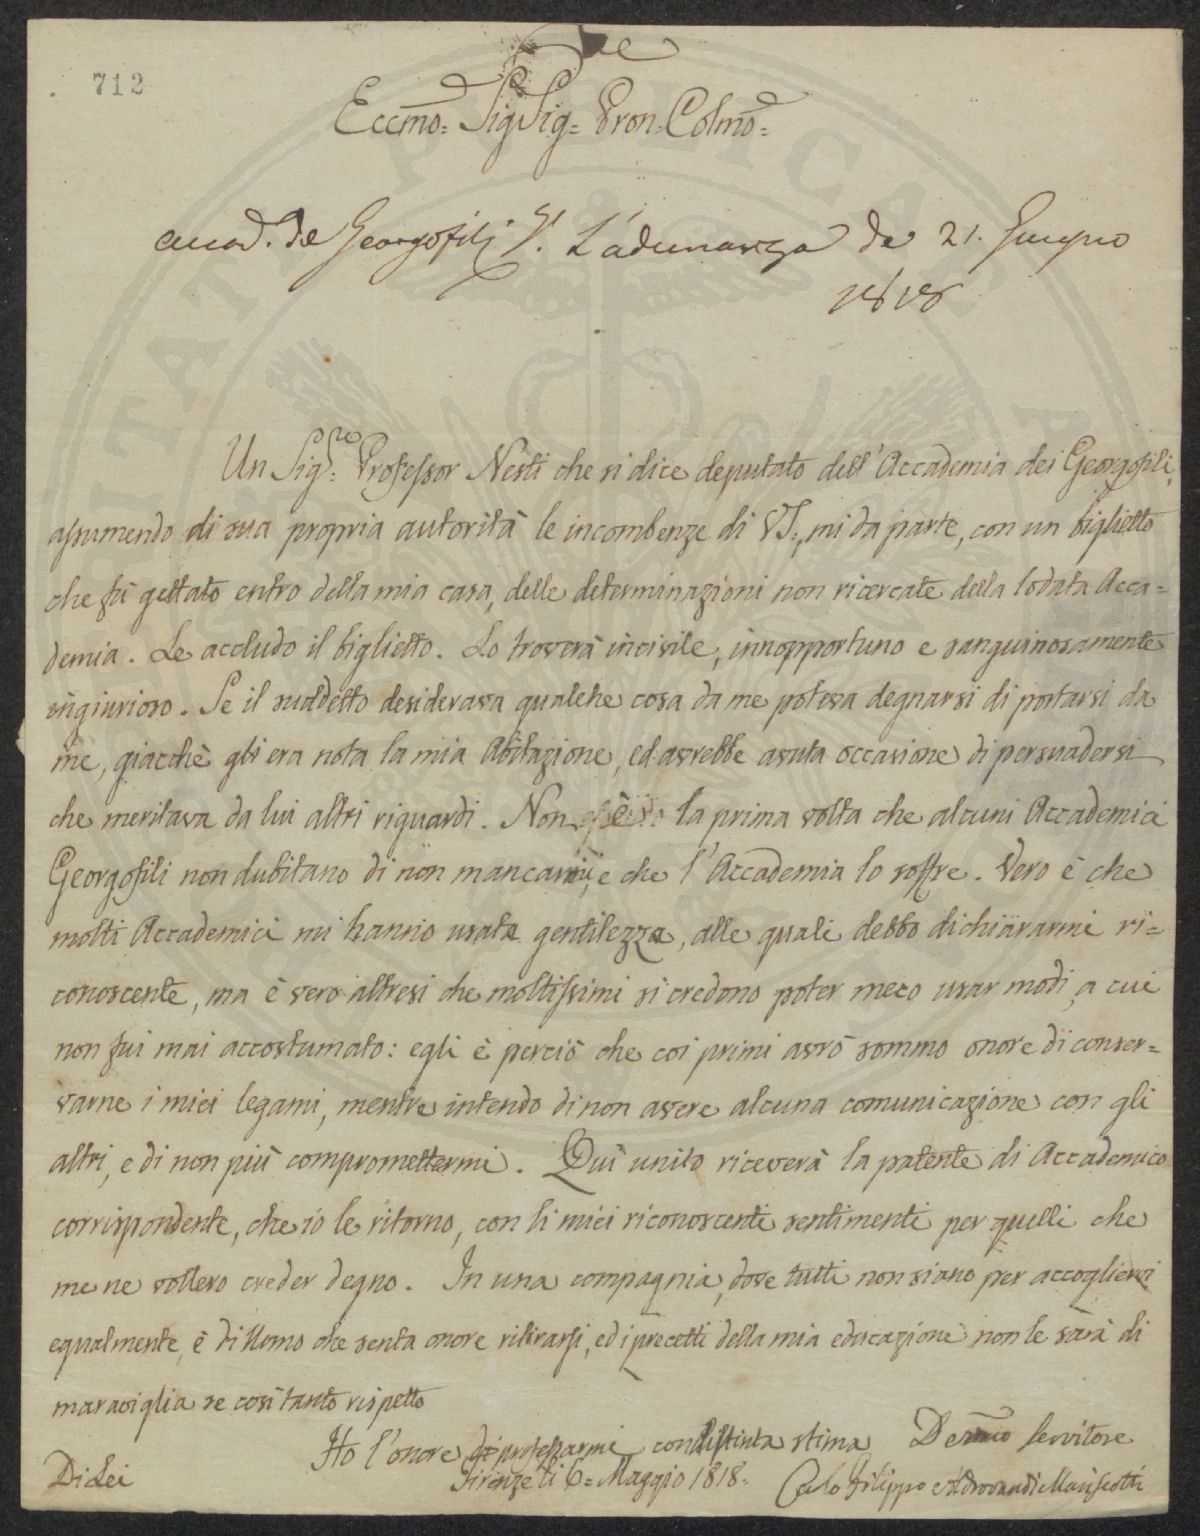 712
Eccmo= Sig Sig= Pron. Colmo=
accad. de Georgofili p. L'adunanza de 21. Giugno
1818
Un Sigre. Professor Nesti che si dice deputato dell'Accademia dei Georgofili,
assumendo di sua propria autorità le incombenze di VS., mi da parte, con un biglietto
che fù gettato entro della mia casa, delle determinazioni non ricercate della lodata Acca=
demia. Le accludo il biglietto. Lo troverà incivile, innopportuno e sanguinosamente
ingiurioso. Se il suddetto desiderava qualche cosa da me poteva degnarsi di portarsi da
me, giacchè gli era nota la mia Abitazione, ed avrebbe avuta occasione di persuadersi
che meritava da lui altri riguardi. Non è la prima volta che alcuni Accademici
Georgofili non dubitano di non mancarmi, e che l'Accademia lo soffre. Vero è che
molti Accademici mi hanno usata gentilezza, alle quali debbo dichiararmi ri=
conoscente, ma è vero altresì che moltissimi si credono poter meco usar modi, a cui
non fui mai accostumato: egli è perciò che coi primi avrò sommo onore di conser=
varne i miei legami, mentre intendo di non avere alcuna comunicazione con gli
altri, e di non più compromettermi. Quì unito riceverà la patente di Accademico
corrispondente, che io le ritorno, con li miei riconoscenti sentimenti per quelli che
me ne vollero creder degno. In una compagnia, dove tutti non siano per accogliervi
egualmente, è di Uomo che senta onore ritirarsi, ed i precetti della mia educazione non le sarà di
maraviglia se così tanto rispetto
Ho l'onore di professarmi con distinta stima Devmo Servitore
Di Lei Firenze li 6= Maggio 1818. Carlo Filippo Aldrovandi Mariscotti